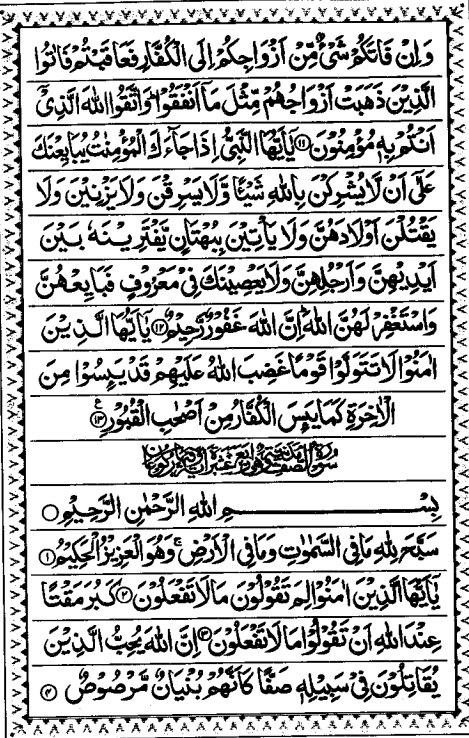 وَاِنْ فَاتَكُمْ شَیْءٌ مِّنْ اَزْوَاجِكُمْ اِلَی الْكُفَّارِ فَعَاقَبْتُمْ فَاٰتُوا
الَّذِیْنَ ذَهَبَتْ اَزْوَاجُهُمْ مِّثْلَ مَاۤ اَنْفَقُوْا ؕ وَاتَّقُوا اللهَ الَّذِیْۤ
اَنْتُمْ بِهٖ مُؤْمِنُوْنَ ﴿۱۱﴾ یٰۤاَیُّهَا النَّبِیُّ اِذَا جَآءَكَ الْمُؤْمِنٰتُ یُبَایِعْنَكَ
عَلٰۤی اَنْ لَّا یُشْرِكْنَ بِاللهِ شَیْـًٔا وَّلَا یَسْرِقْنَ وَلَا یَزْنِیْنَ وَلَا
یَقْتُلْنَ اَوْلَادَهُنَّ وَلَا یَاْتِیْنَ بِبُهْتَانٍ یَّفْتَرِیْنَهٗ بَیْنَ
اَیْدِیْهِنَّ وَاَرْجُلِهِنَّ وَلَا یَعْصِیْنَكَ فِیْ مَعْرُوْفٍ فَبَایِعْهُنَّ
وَاسْتَغْفِرْ لَهُنَّ اللهَ ؕ اِنَّ اللهَ غَفُوْرٌ رَّحِیْمٌ ﴿۱۲﴾ یٰۤاَیُّهَا الَّذِیْنَ
اٰمَنُوْا لَا تَتَوَلَّوْا قَوْمًا غَضِبَ اللهُ عَلَیْهِمْ قَدْ یَىِٕسُوْا مِنَ
الْاٰخِرَةِ كَمَا یَىِٕسَ الْكُفَّارُ مِنْ اَصْحٰبِ الْقُبُوْرِ ﴿۱۳﴾ ع
سُوْرَةُ الصَّفِّ
بِسْمِ اللهِ الرَّحْمٰنِ الرَّحِیْمِ ○
سَبَّحَ لِلّٰهِ مَا فِی السَّمٰوٰتِ وَمَا فِی الْاَرْضِ ۚ وَهُوَ الْعَزِیْزُ الْحَكِیْمُ ﴿۱﴾
یٰۤاَیُّهَا الَّذِیْنَ اٰمَنُوْا لِمَ تَقُوْلُوْنَ مَا لَا تَفْعَلُوْنَ ﴿۲﴾ كَبُرَ مَقْتًا
عِنْدَ اللهِ اَنْ تَقُوْلُوْا مَا لَا تَفْعَلُوْنَ ﴿۳﴾ اِنَّ اللهَ یُحِبُّ الَّذِیْنَ
یُقَاتِلُوْنَ فِیْ سَبِیْلِهٖ صَفًّا كَاَنَّهُمْ بُنْیَانٌ مَّرْصُوْصٌ ﴿۴﴾